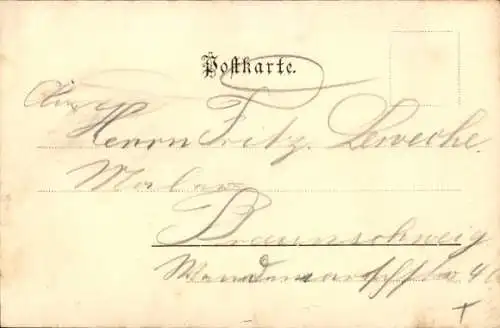 Postkarte.
An
Herrn Fritz Lewecke.
Maler
Braunschweig